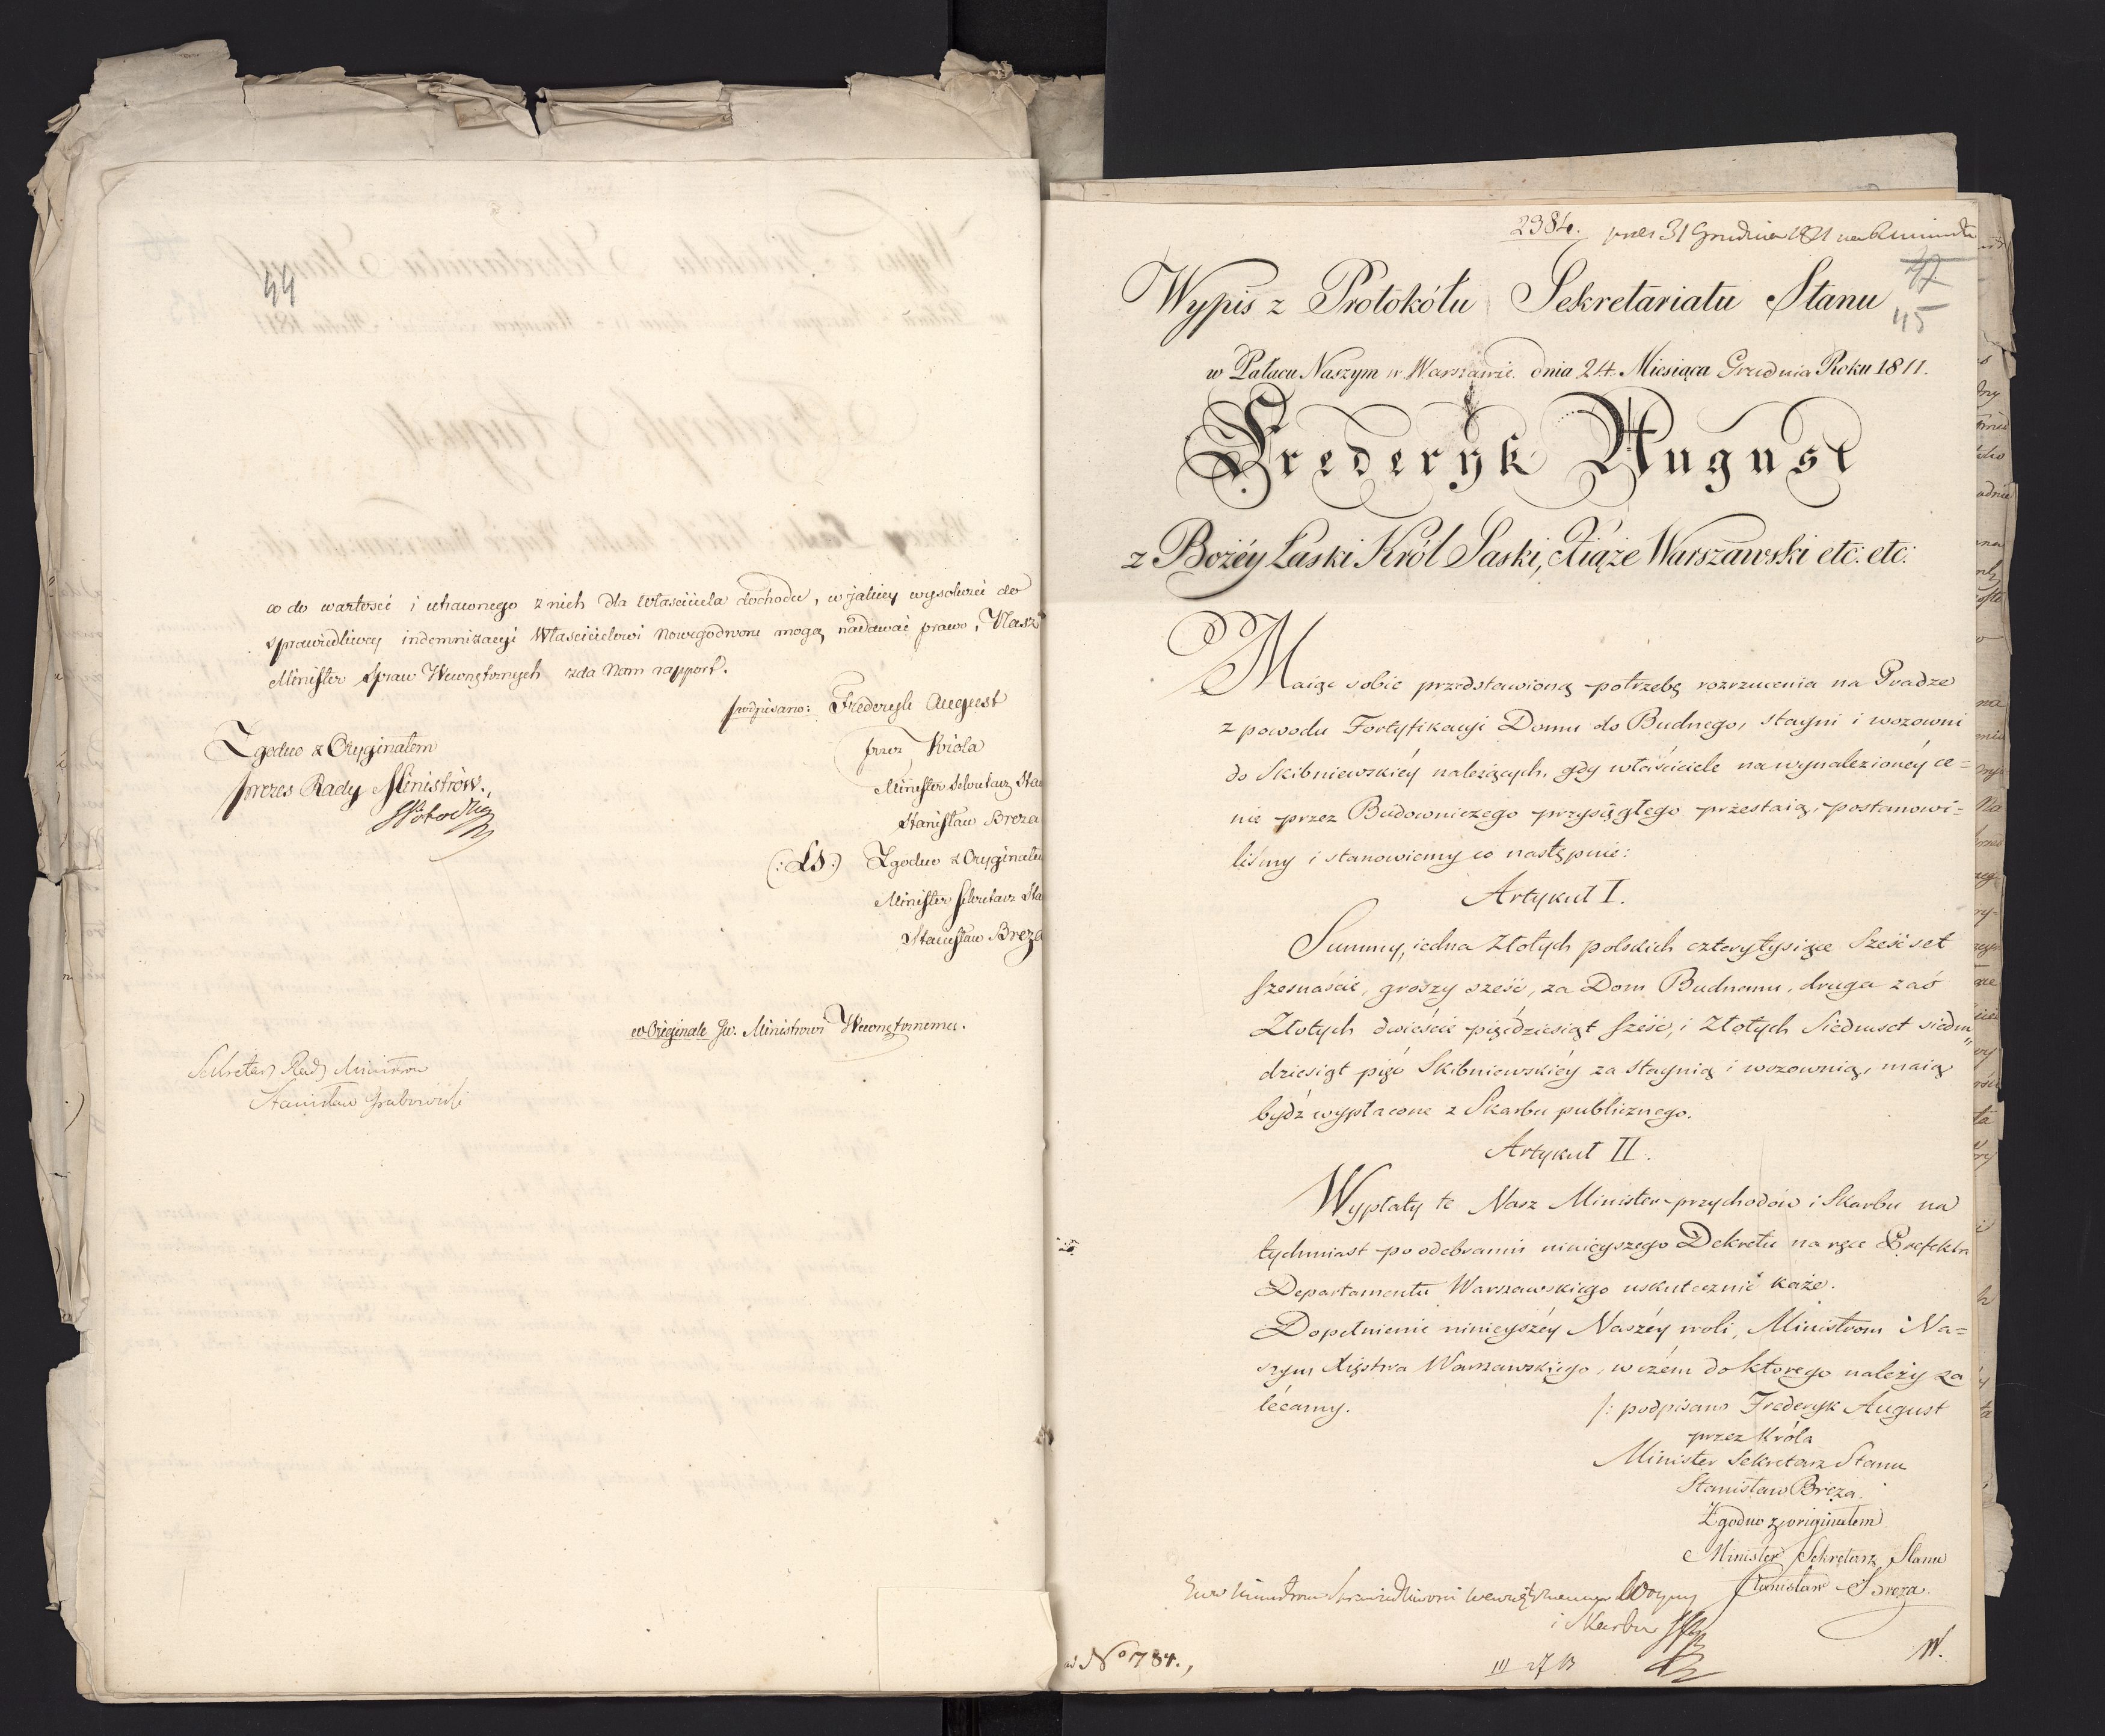 44
co do wartości i utraconego z nich dla Właściciela dochodu, w jakiey wysokości do
sprawiedliwey indemnizacyi Właścicielowi Nowogodworu mogą nadawać prawo, Nasz
Minister Spraw Wewnętrznych zda Nam rapport.
podpisano: Frederyk August
przez Króla
Minister Sekretarz Stan
Stanisław Breza
(: LS :) Zgodno z Oryginałem
Minister Sekretarz Sta
Stanisław Breza
Zgodno z Oryginałem
prezes Rady Ministrów.
w Originale Jw. Ministrowi Wewnętrznemu.
Sekretarz Rady Ministrów
Stanisław Grabowski
2384. 31 Grudnia 1811
47
45
Wypis z Protokółu Sekretariatu Stanu
w Pałacu Naszym w Warszawie dnia 24. Miesiąca Grudnia Roku 1811.
Frederyk August
z Bożéy Łaski Król Saski, Xiąże Warszawski etc: etc:
Maiąc sobie przedstawioną potrzebę rozrzucenia na Pradze
z powodu Fortyfikacyi Domu do Budnego, stayni i wozowni
do Skibniewskiéy należących, gdy właściciele na wynalezionéy ce=
nie przez Budowniczego przysięgłego przestaią, postanowi=
liśmy i stanowiemy co następuie:
Artykuł I.
Summy, iedna Złotych polskich czterytysiące sześćset
szesnaście, groszy sześć, za Dom Budnemu, druga zaś
Złotych dwieście pięćdziesiąt sześć, i Złotych Siedmset siedm„
dziesiąt pięć Skibniewskiéy za staynią i wozownią, maią
bydź wypłacone z Skarbu publicznego.
Artykuł II.
Wypłaty te Nasz Minister przychodów i Skarbu na
tychmiast po odebraniu ninieyszego Dekretu na ręce Prefekta
Departamentu Warszawskiego uskutecznić każe.
Dopełnienie ninieyszéy Naszéy woli, Ministrom Na=
szym Xięstwa Warszawskiego, w czém do którego należy za
lécamy.
/: podpisano Frederyk August
przez Króla
Minister Sekretarz Stanu
Stanisław Breza.
Zgodno z originałem
Minister Sekretarz Stanu
Stanisław Breza.
Ministrom Sprawiedliwości Wewnętrznemu Woyny
i Skarbu
ad No 784.,
W.